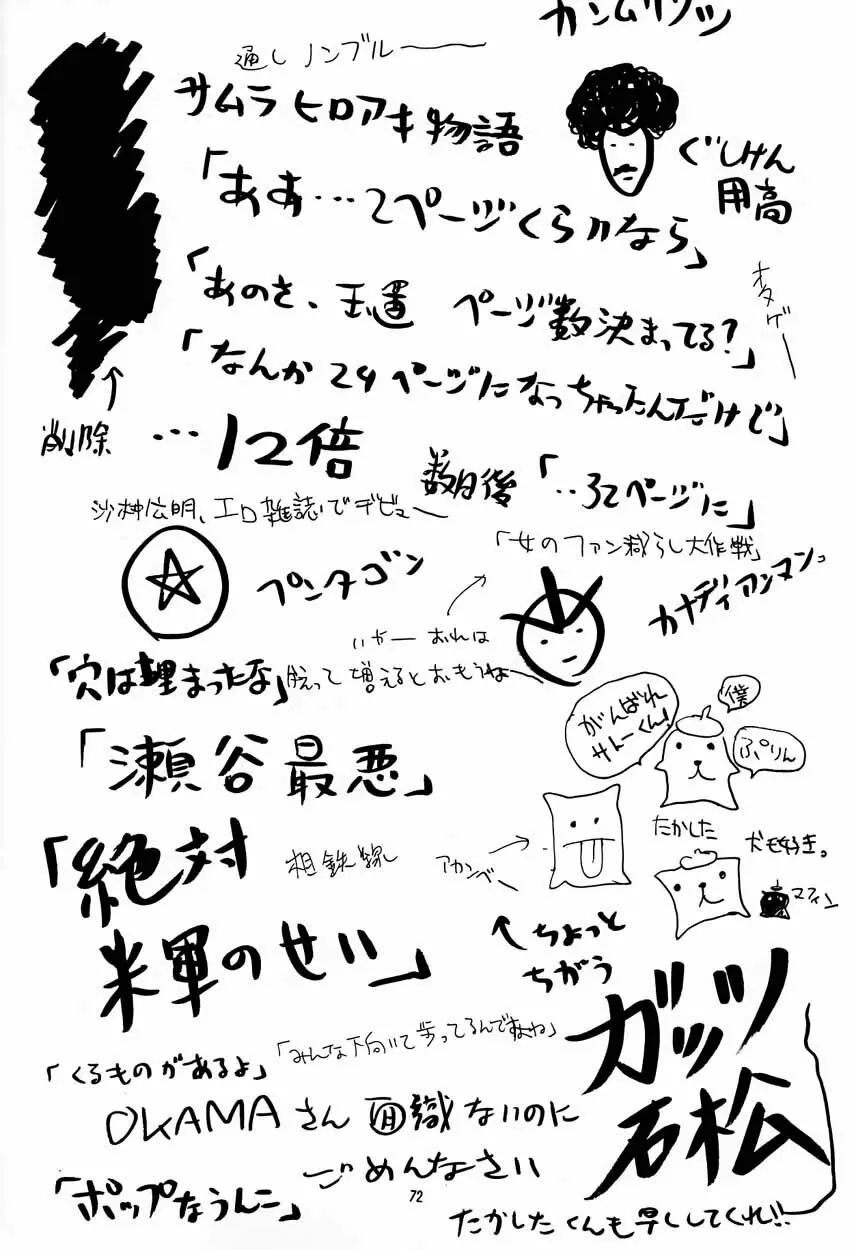 カンムリワシ
通しノンブルーーー
サムラヒロアキ物語
ぐしけん
用高
「ああ…2ページくらいなら」
「あのさ、玉置 ページ数決まってる?」
オタゲー
「なんか24ページになっちゃったんだけど」
削除
…12倍
数日後「‥32ページに」
沙村広明、エロ雑誌でデビュー
「女のファン減らし大作戦」
ペンタゴン
カナディアンマン。
いやー おれは
「穴は埋まったな」
脱って増えるとおもうねー
がんばれ
サトーくん!
僕
ぷりん
「瀬谷最悪」
たかした
犬も好き。
「絶対
相鉄線
アカンベー
マフィン
米軍のせい」
ちょっと
ちがう
ガッツ
石松
「みんな下向いて歩ってるんですよね」
「くるものがあるよ」
OKAMAさん 面識ないのに
ごめんなさい
「ポップなうんこ」
72
たかしたくんも早くしてくれ!!